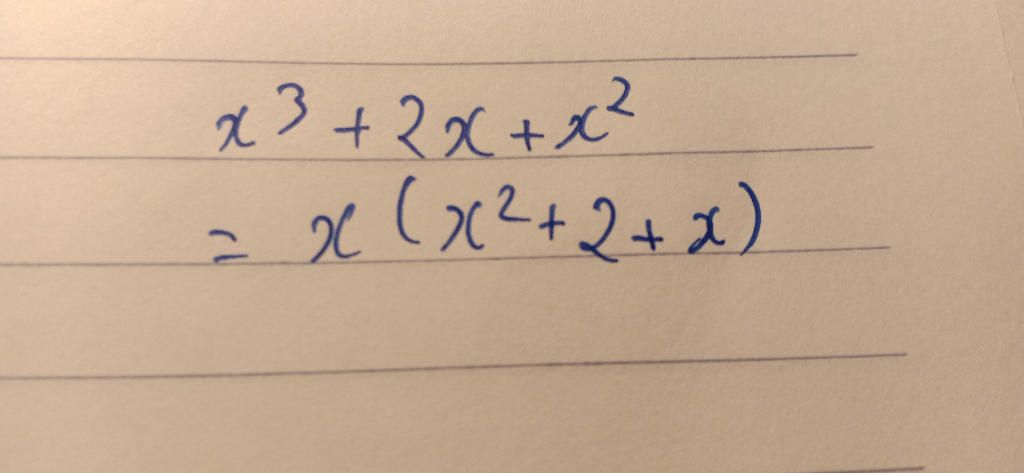 x³ + 2x + x²
= x (x² + 2 + x)